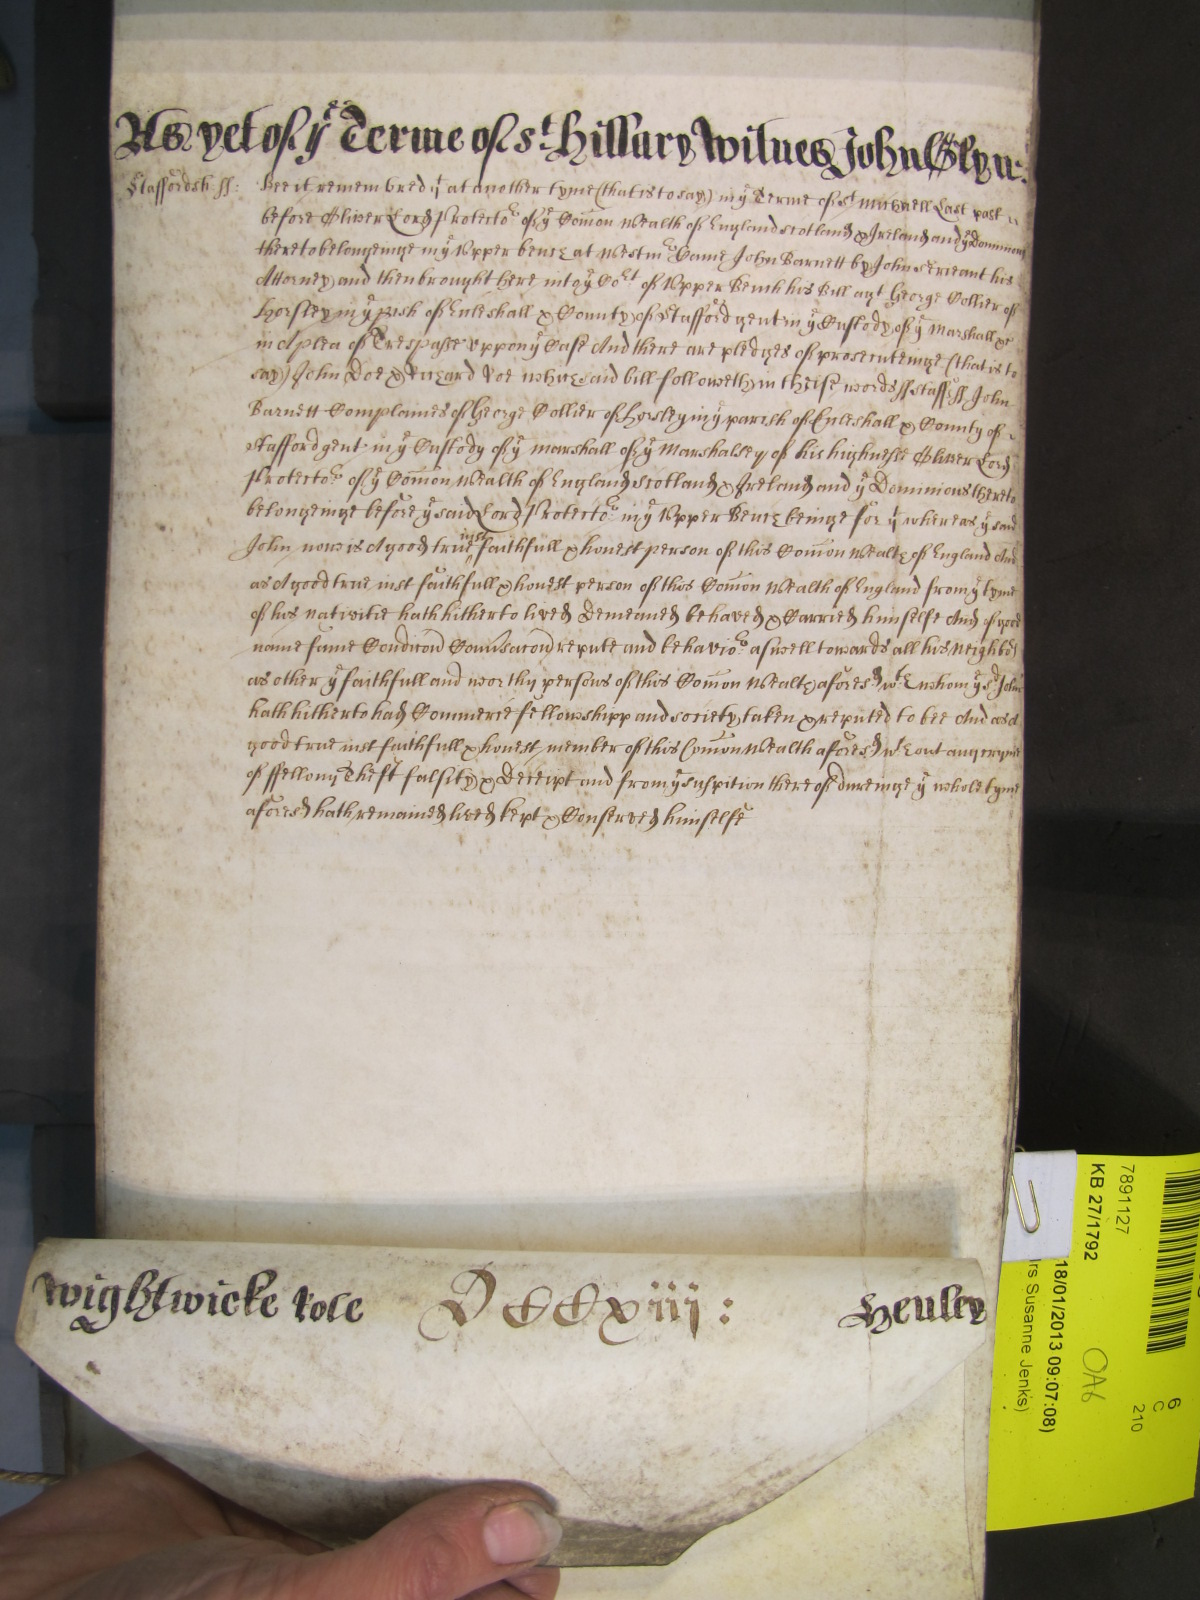 As yet of yͤ Terme of Sᵗ Hillary Witnes John Glyn:
Staffordsh: ss: Bee it remembred yͭ at another tyme (that is to say) in yͤ Terme of Sᵗ Michaell Last past
before Oliver Lord Protectoʳ of yͤ Com̄on Wealth of England Scotland & Ireland and yͤ Dominions
thereto belongeinge in yͤ Upper bench at Westmʳ Came John Barnett by John Serieant his
Attorney and then brought here into yͤ Coʳᵗ of Upper Bench his Bill agᵗ George Collier of
Horsley in yͤ pish of Eccleshall & County of Stafford gent in yͤ Custody of yͤ Marshall &c
in A plea of Trespasse Uppon yͤ Case And there are pledges of prosecuteinge (that is to
say) John Doe & Richard Roe which said bill followeth in theise words ss Staff ss John
Barnett Complaines of George Collier of Horsley in yͤ parish of Eccleshall & County of
Stafford gent in yͤ Custody of yͤ Marshall of yͤ Marshalsey of his highnesse Oliver Lord
Protectoʳ of yͤ Com̄on Wealth of England Scotland & Ireland and yͤ Dominions thereto
belongeinge before yͤ said Lord Protectoʳ in yͤ Upper Bench beinge for yͭ whereas yͤ said
John now is A good true iust faithfull & honest person of this Com̄on Wealth of England And
as A good true iust faithfull & honest person of this Com̄on Wealth of England from yͤ tyme
of his nativitie hath hitherto lived Demeaned behaved & Carried himselfe And of good
name fame Condic̄on Conv̄sac̄on repute and behavioʳ aswell towards all his Neighboʳˢ
as other yͤ faithfull and worthy persons of this Com̄on Wealth aforesᵈ wᵗʰ whom yͤ sᵈ John
hath hitherto had Commerce fellowshipp and society taken & reputed to bee And as A
good true iust faithfull & honest member of this Com̄on Wealth aforesᵈ wᵗʰout any cryme
of ffellony Theft falsity & Deceipt and from yͤ suspition thereof dureinge yͤ whole tyme
aforesᵈ hath remained lived kept & Conserved himselfe
Wightwicke Role DCCCxiij: Henley
7891127
KB 27/1792
18/01/2013 09:07:08)
rs Susanne Jenks)
OA6
6
C
210